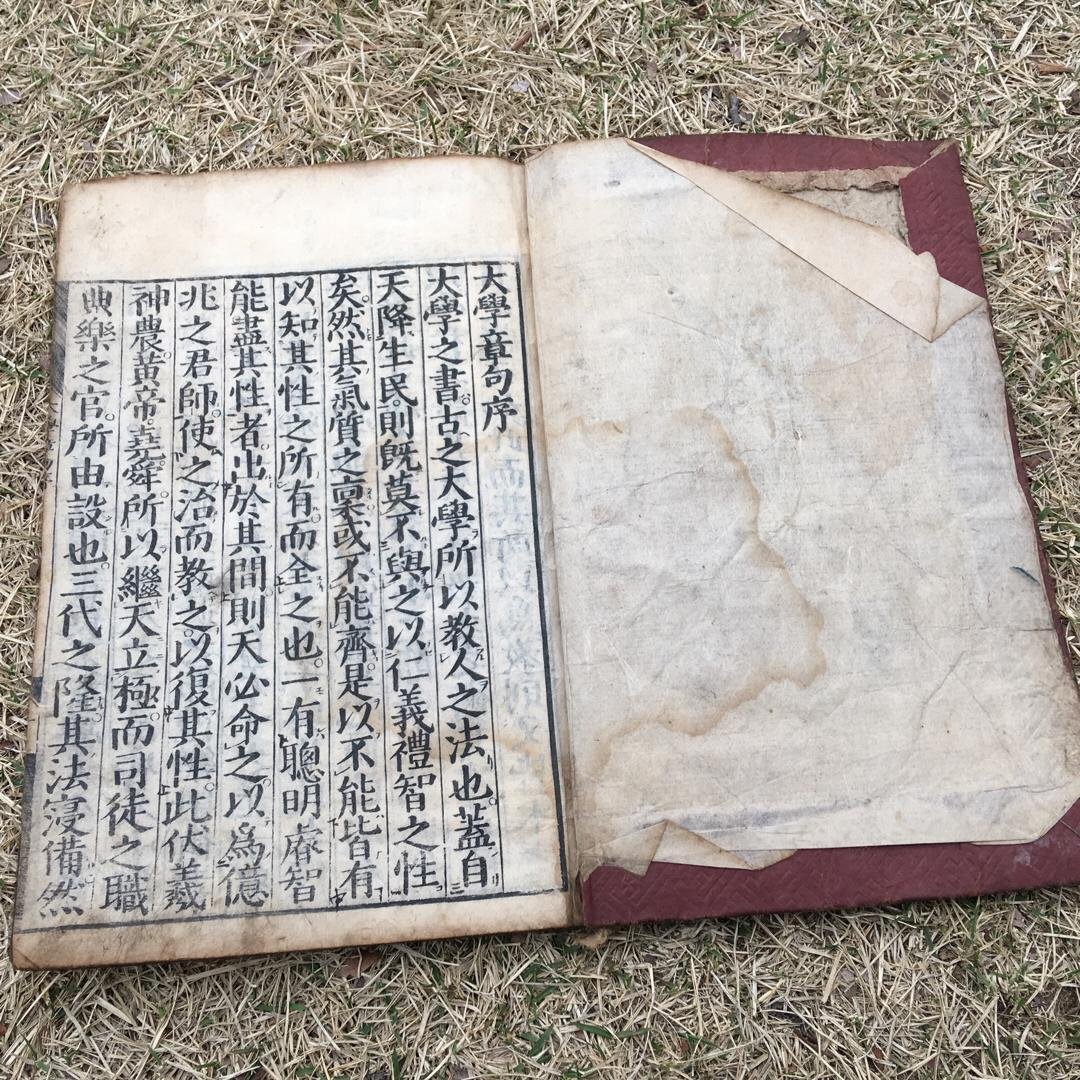 大學章句序
大學之書古之大學所以教人之法也蓋自
天降生民則既莫不與之以仁義禮智之性
矣然其氣質之稟或不能齊是以不能皆有
以知其性之所有而全之也一有聰明睿智
能盡其性者出於其間則天必命之以爲億
兆之君師使之治而教之以復其性此伏羲
神農黄帝堯舜所以繼天立極而司徒之職
典樂之官所由設也三代之隆其法寖備然